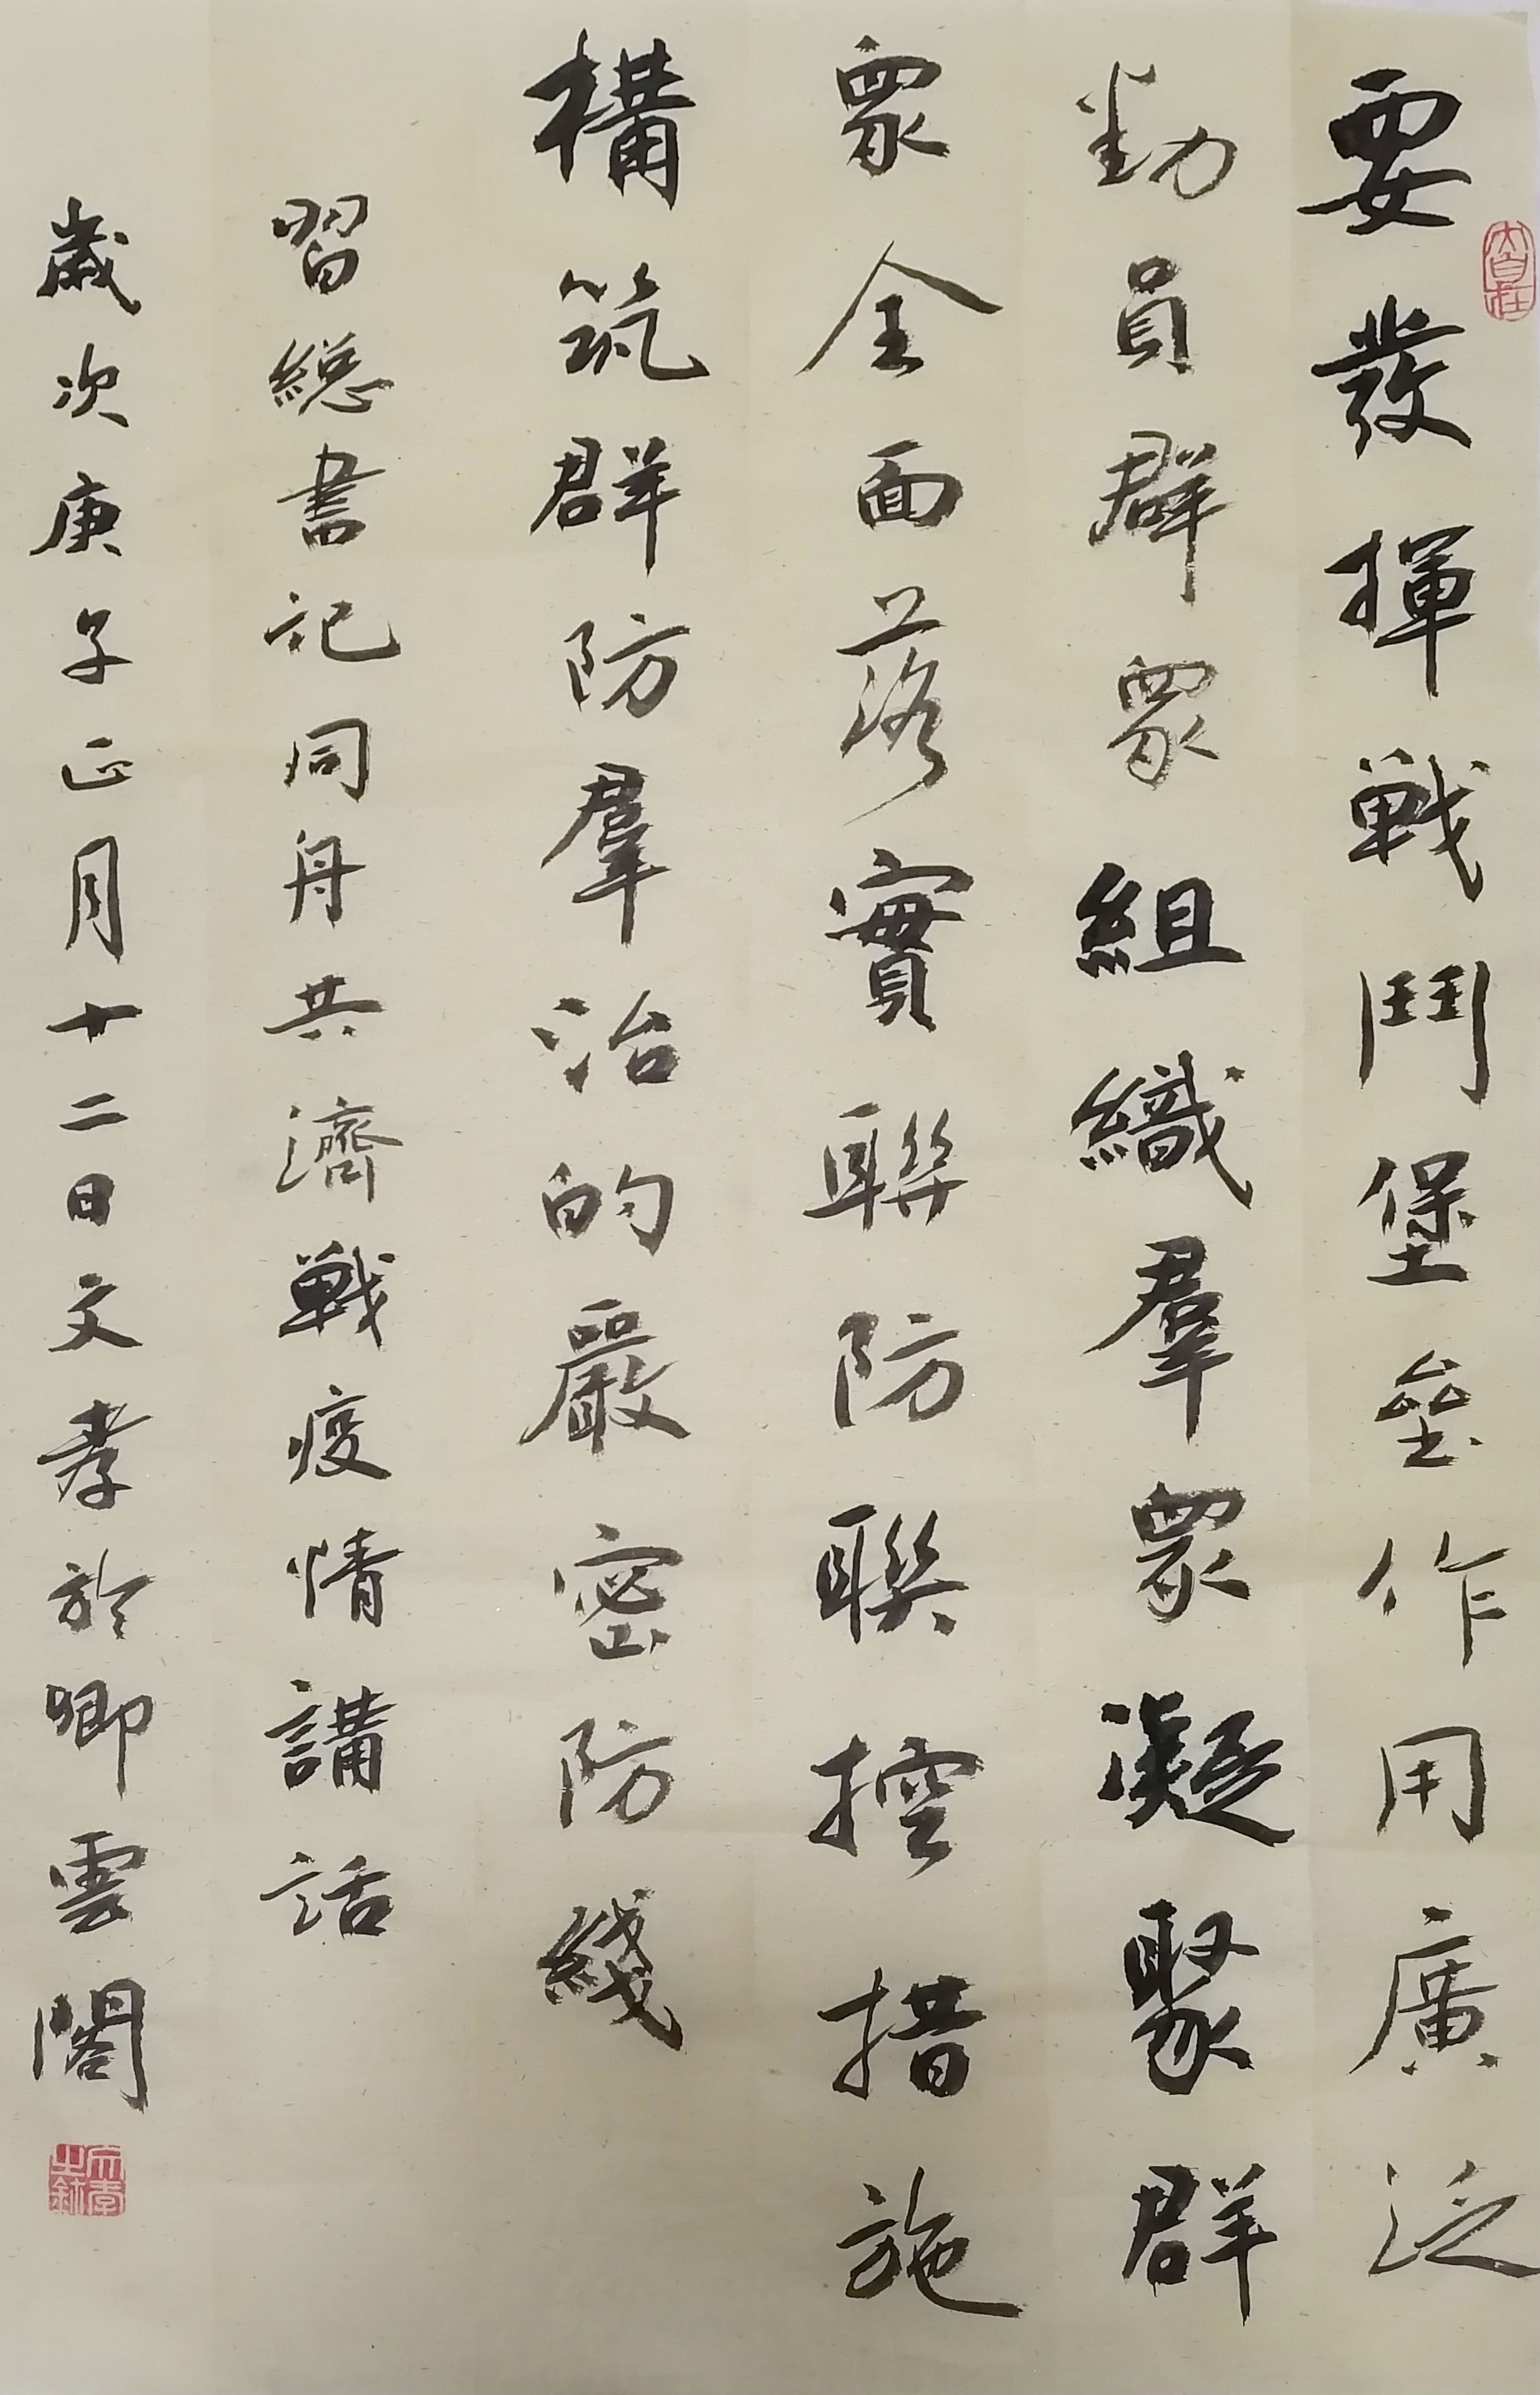 要發揮戦鬥堡壘作用廣泛
動員群眾組織羣眾凝聚群
眾全面落實聯防聯控措施
構筑群防羣治的嚴密防綫
習總書記同舟共濟戦疫情講話
歲次庚子正月十二日文孝於卿雲閣